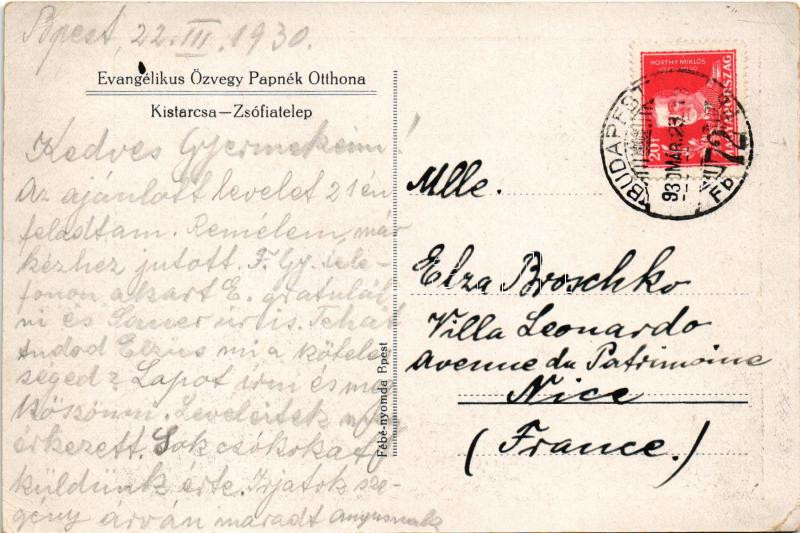 Bpest, 22.III.1930.
Evangélikus Özvegy Papnék Otthona
Kistarcsa—Zsófiatelep
Kedves Gyermekeim!
Az ajánlott levelet 21 én
feladtam. Remélem, már
kézhez jutott. F. Gy. tele-
fonon akart E. gratulál
ni és úr is. Tehát
tudod Elzus mi a köteles
séged? Lapot írni és meg
köszönni. Leveleitek
érkezett. Sok csókokat
küldünk érte. Irjatok sze-
gény árván maradt anyusnak
Fébé-nyomda Bpest
HORTHY MIKLÓS
1920-1930
MAGYARORSZÁG
20f
BUDAPEST 72
930 MÁR.23
Mlle.
Elza Broschko
Villa Leonardo
Avenue du Patrimoine
Nice
(France.)